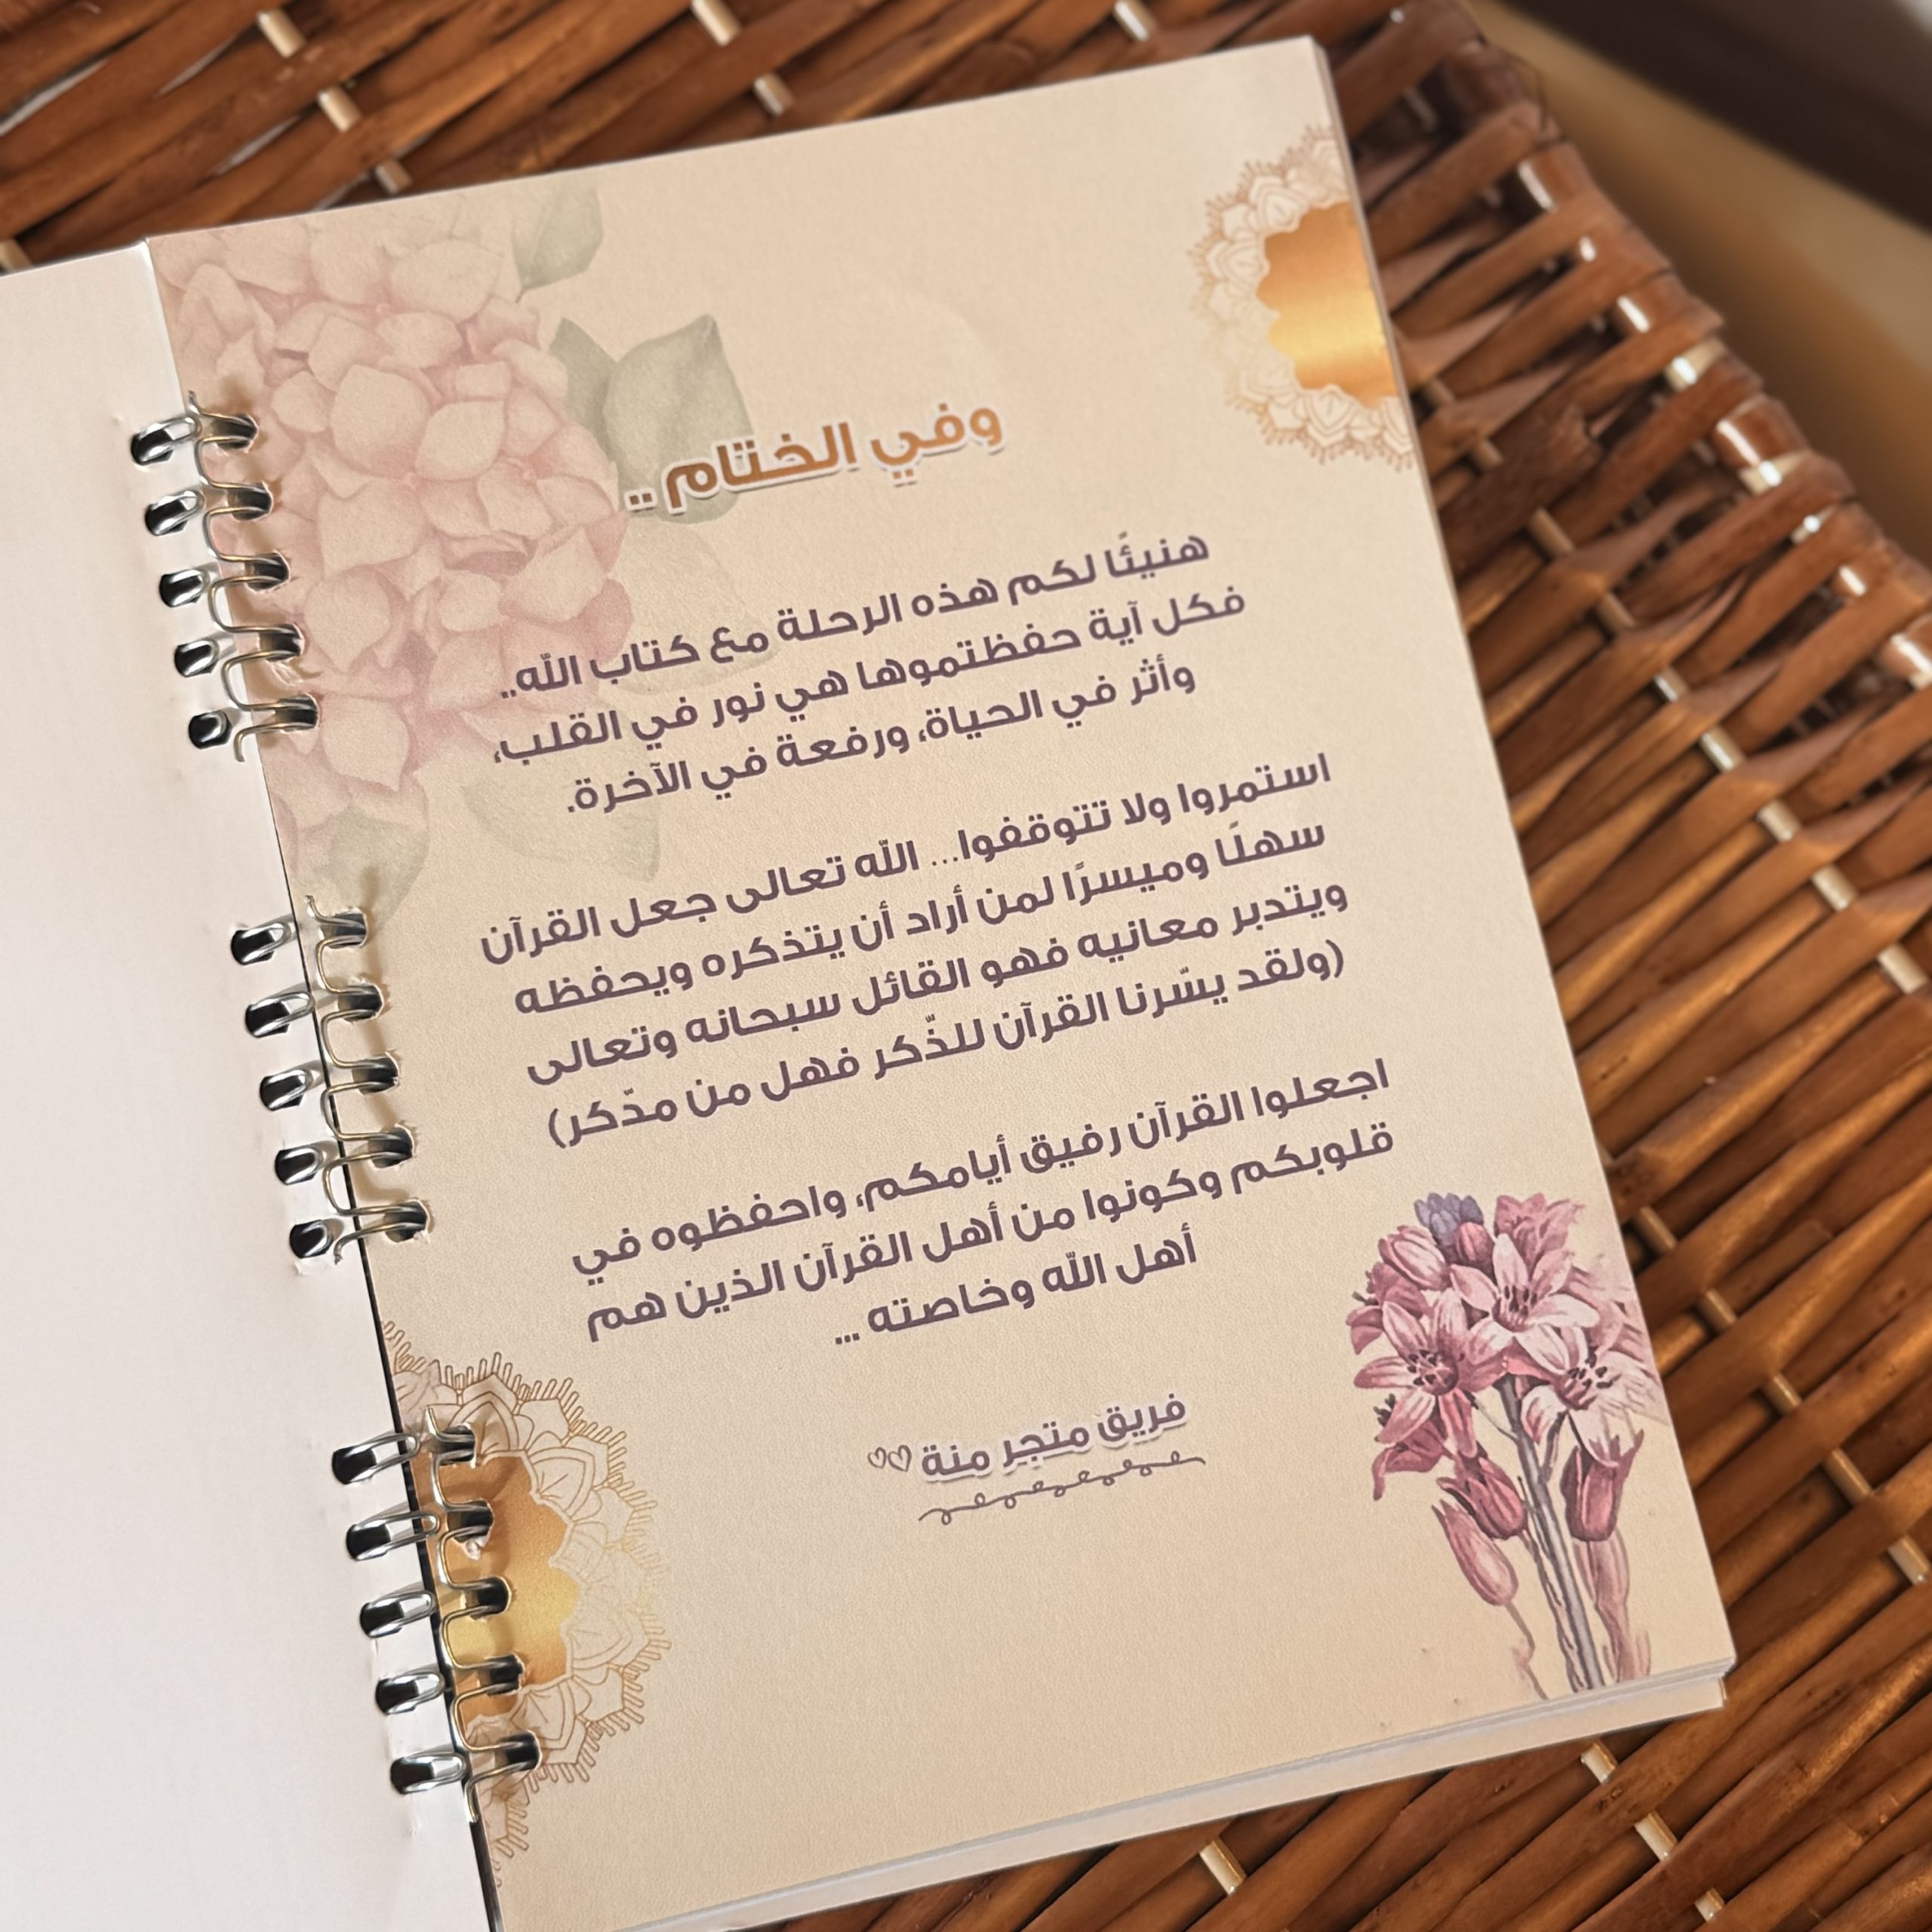 وفي الختام ..
هنيئًا لكم هذه الرحلة مع كتاب الله..
فكل آية حفظتموها هي نور في القلب،
وأثر في الحياة، ورفعة في الآخرة.
استمروا ولا تتوقفوا... الله تعالى جعل القرآن
سهلًا وميسرًا لمن أراد أن يتذكره ويحفظه
ويتدبر معانيه فهو القائل سبحانه وتعالى
(ولقد يسّرنا القرآن للذّكر فهل من مدّكر)
اجعلوا القرآن رفيق أيامكم، واحفظوه في
قلوبكم وكونوا من أهل القرآن الذين هم
أهل الله وخاصته ...
فريق متجر منة